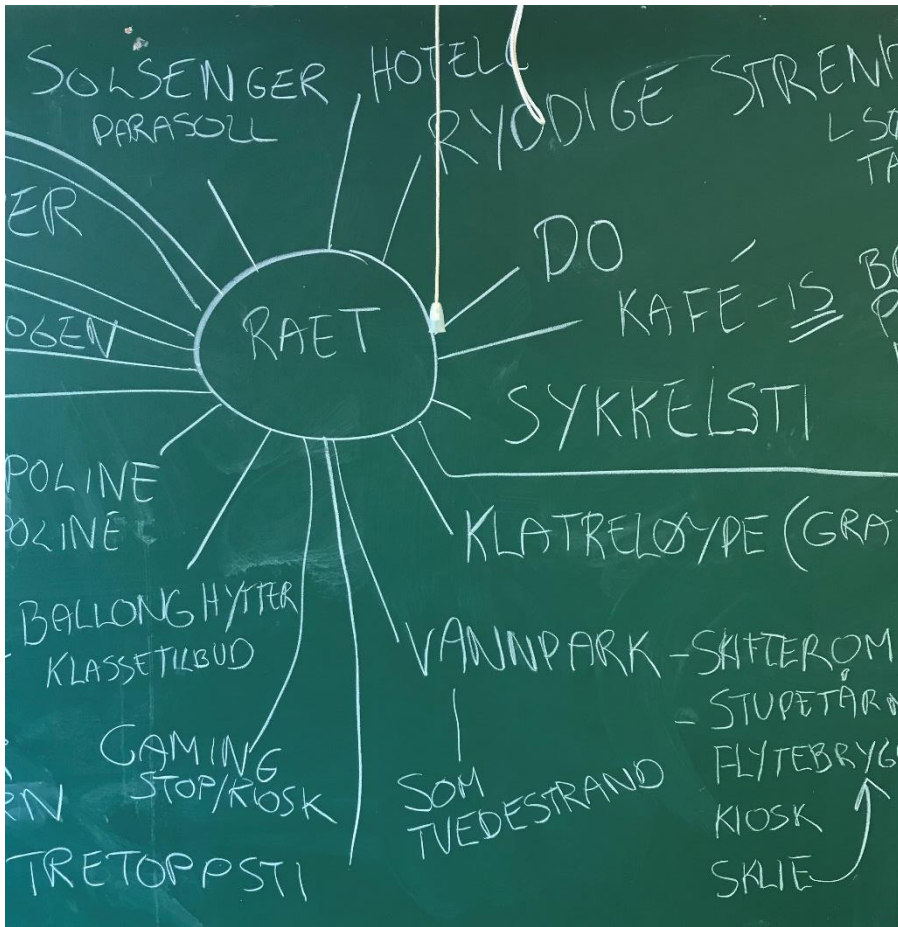 SOLSENGER
PARASOLL
HOTELL
RYDDIGE STREN
L SO
TA
ER
DO
KAFÉ - IS
BO
P
OGEN
RAET
SYKKELSTI
POLINE
OLINE
KLATRELØYPE (GRA
BALLONGHYTTER
KLASSETILBUD
VANNPARK - SKIFTEROM
- STUPETÅRN
FLYTEBRYG
KIOSK
SKLIE
SOM
TVEDESTRAND
GAMING
STOP/KIOSK
RN
TRETOPPSTI